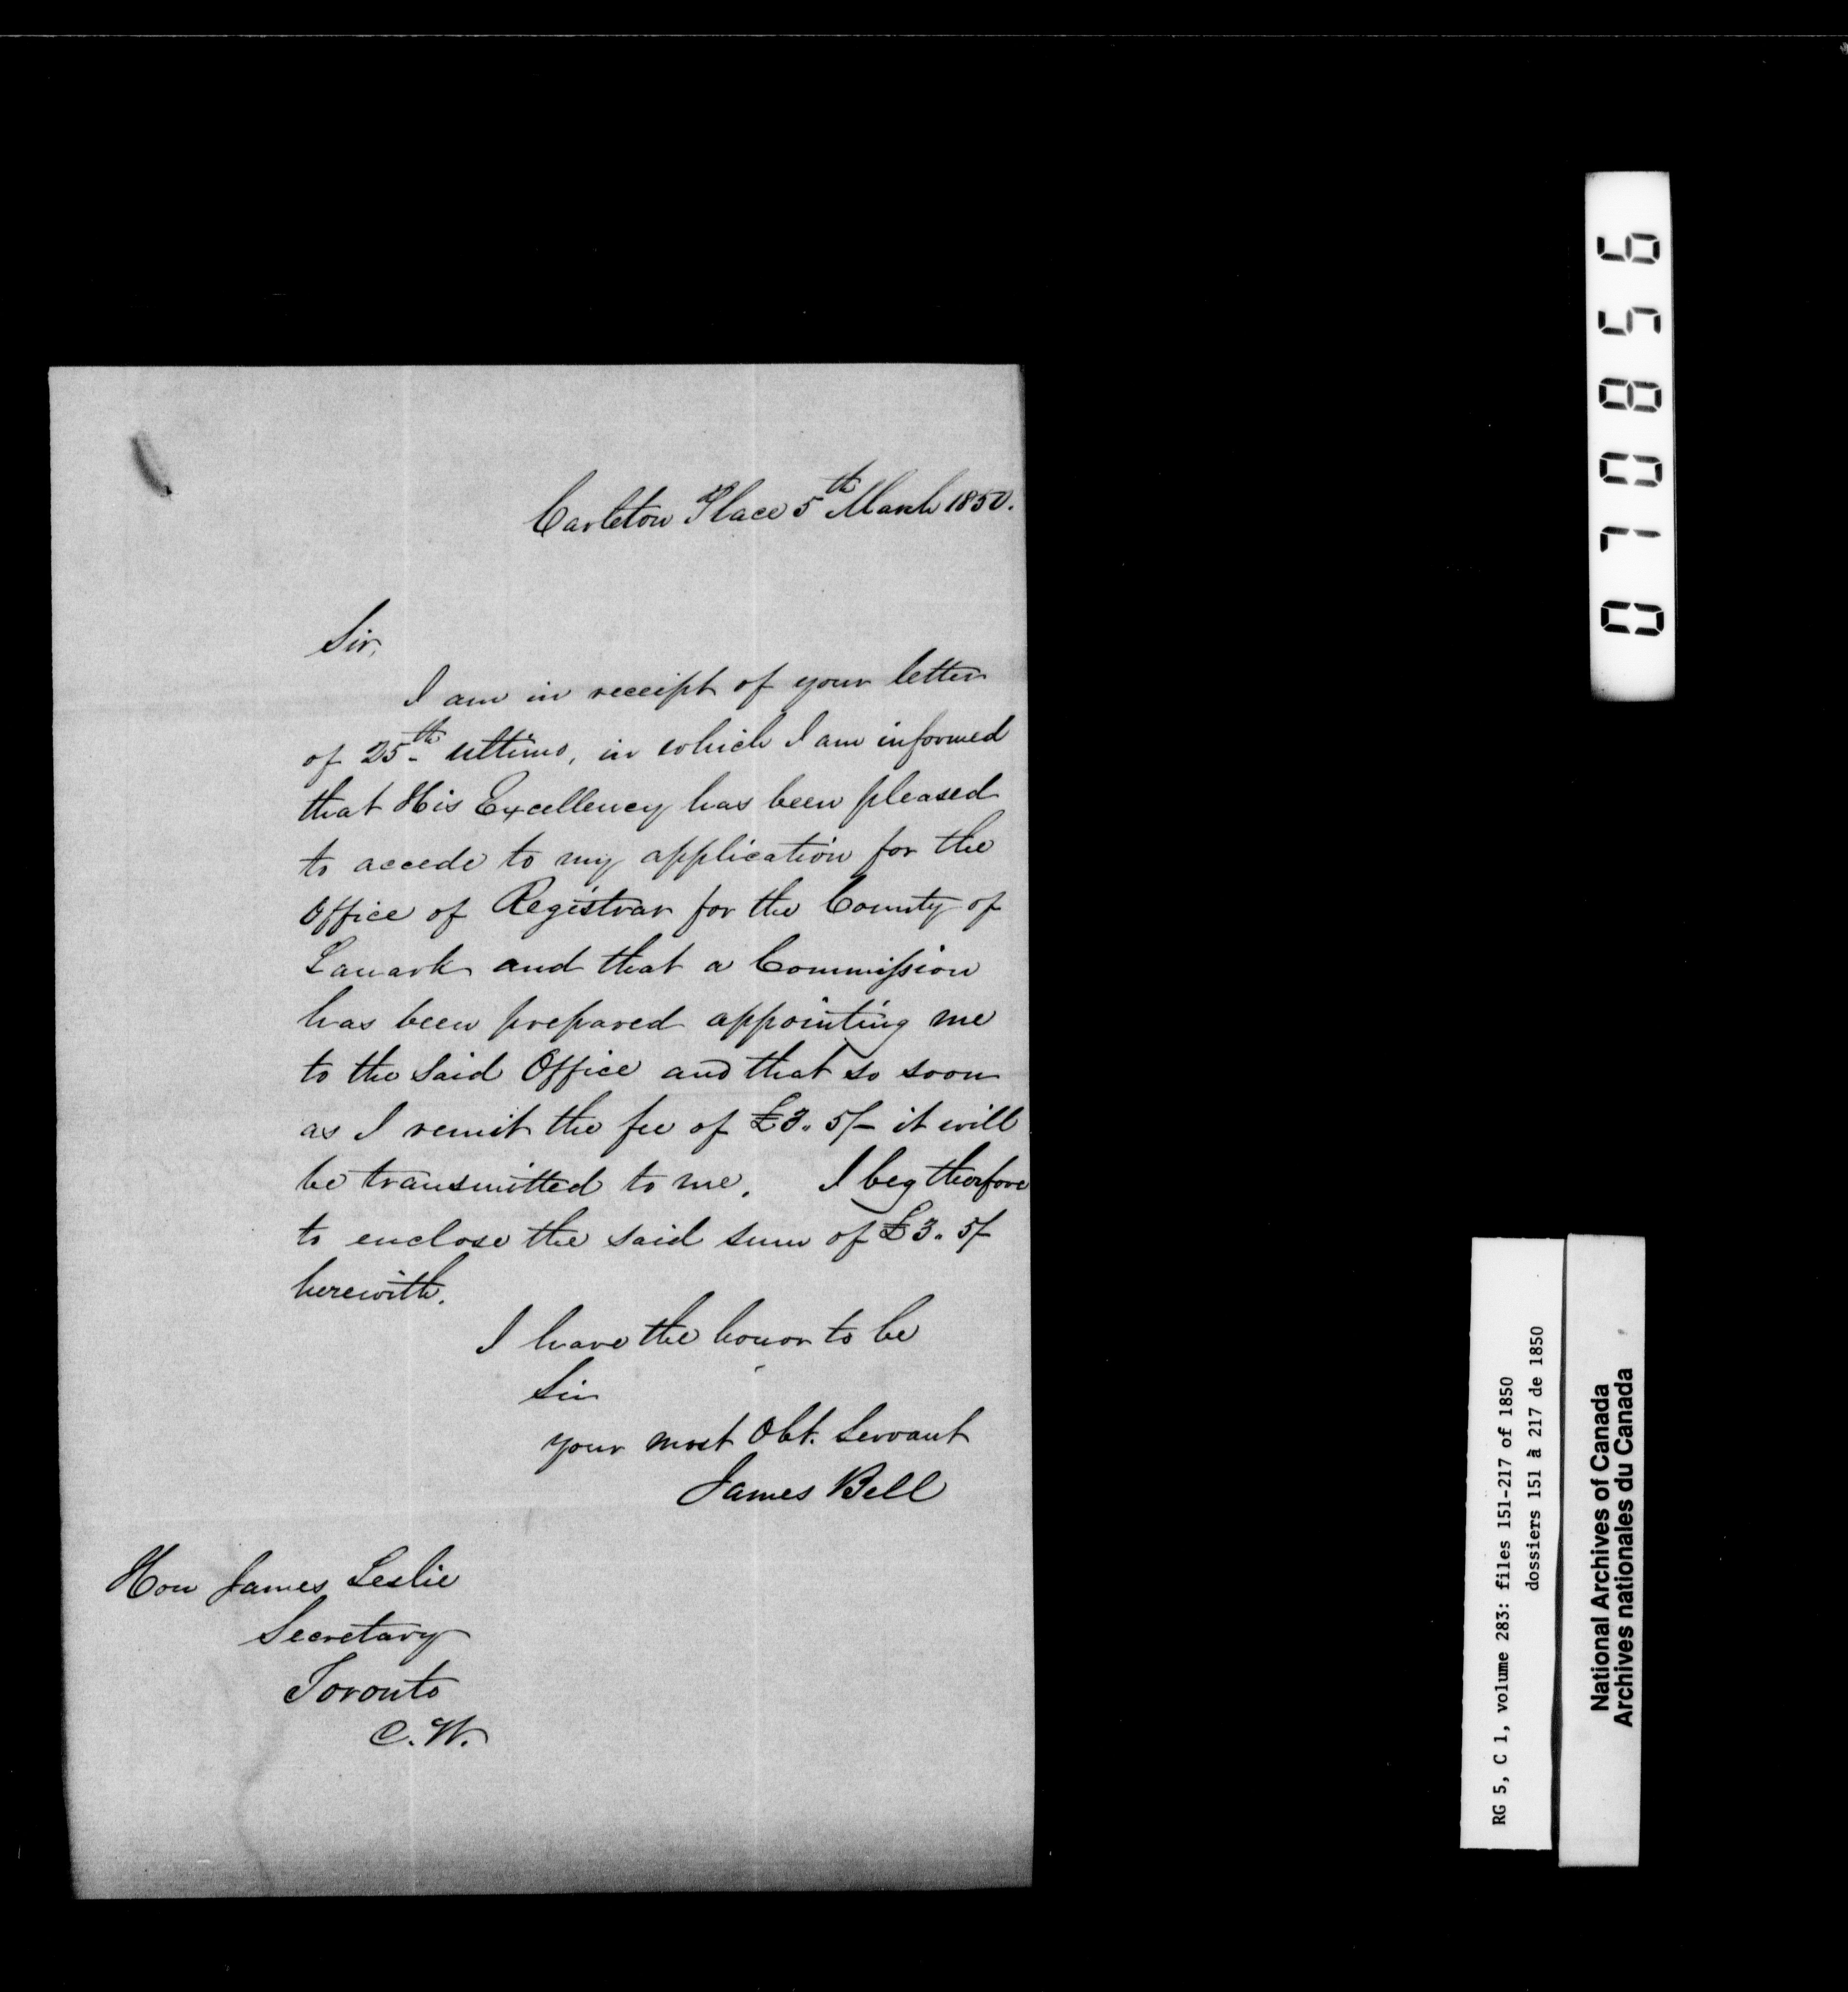 Carleton Place 5th March 1850.
Sir,
I am in receipt of your letter
of 25th ultimo, in which I am informed
that His Excellency has been pleased
to accede to my application for the
Office of Registrar for the County of
Lanark and that a Commission
has been prepared appointing me
to the Said Office and that so soon
as I remit the fee of £3. 5/- it will
be transmitted to me. I beg therfore
to enclose the said sum of £3. 5/-
herewith.
I have the honor to be
Sir
your most Obt. Servant
James Bell
Hon James Leslie
Secretary
Toronto
C.W.
070856
RG 5, C 1, volume 283: files 151-217 of 1850
dossiers 151 à 217 de 1850
National Archives of Canada
Archives nationales du Canada